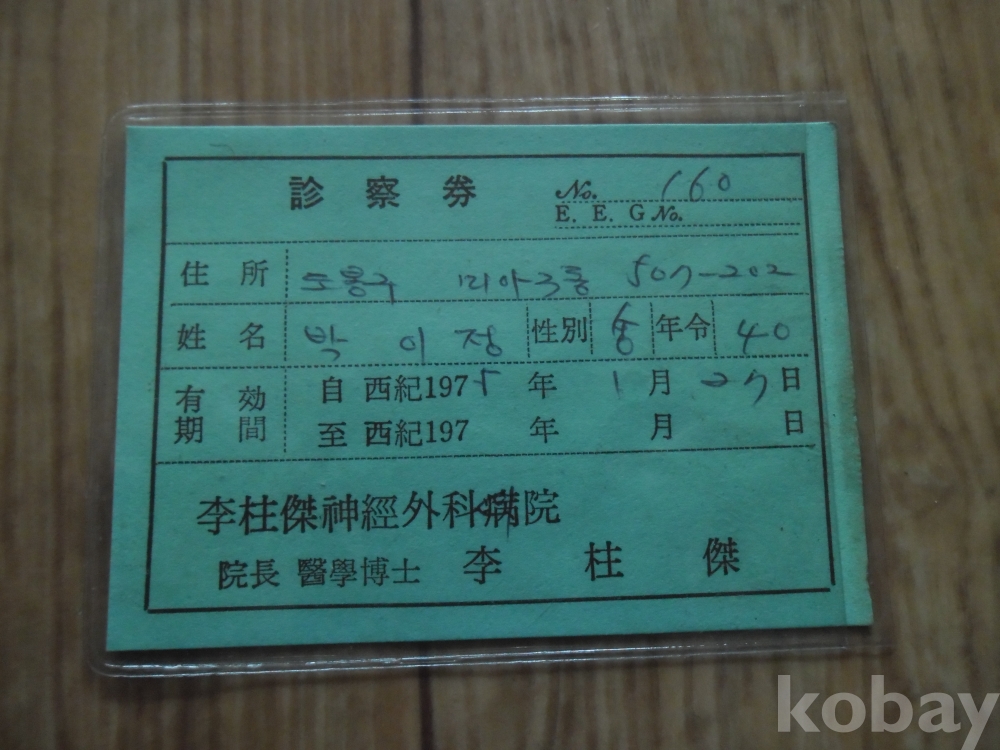 診察券 No. 160
E. E. G No.
住所 도봉구 미아3동 507-202
姓名 박이정 性別 年令 40
有効期間 自 西紀1975年 1月 27日
至 西紀197 年 月 日
李柱傑神經外科病院
院長 醫學博士 李柱傑
kobay